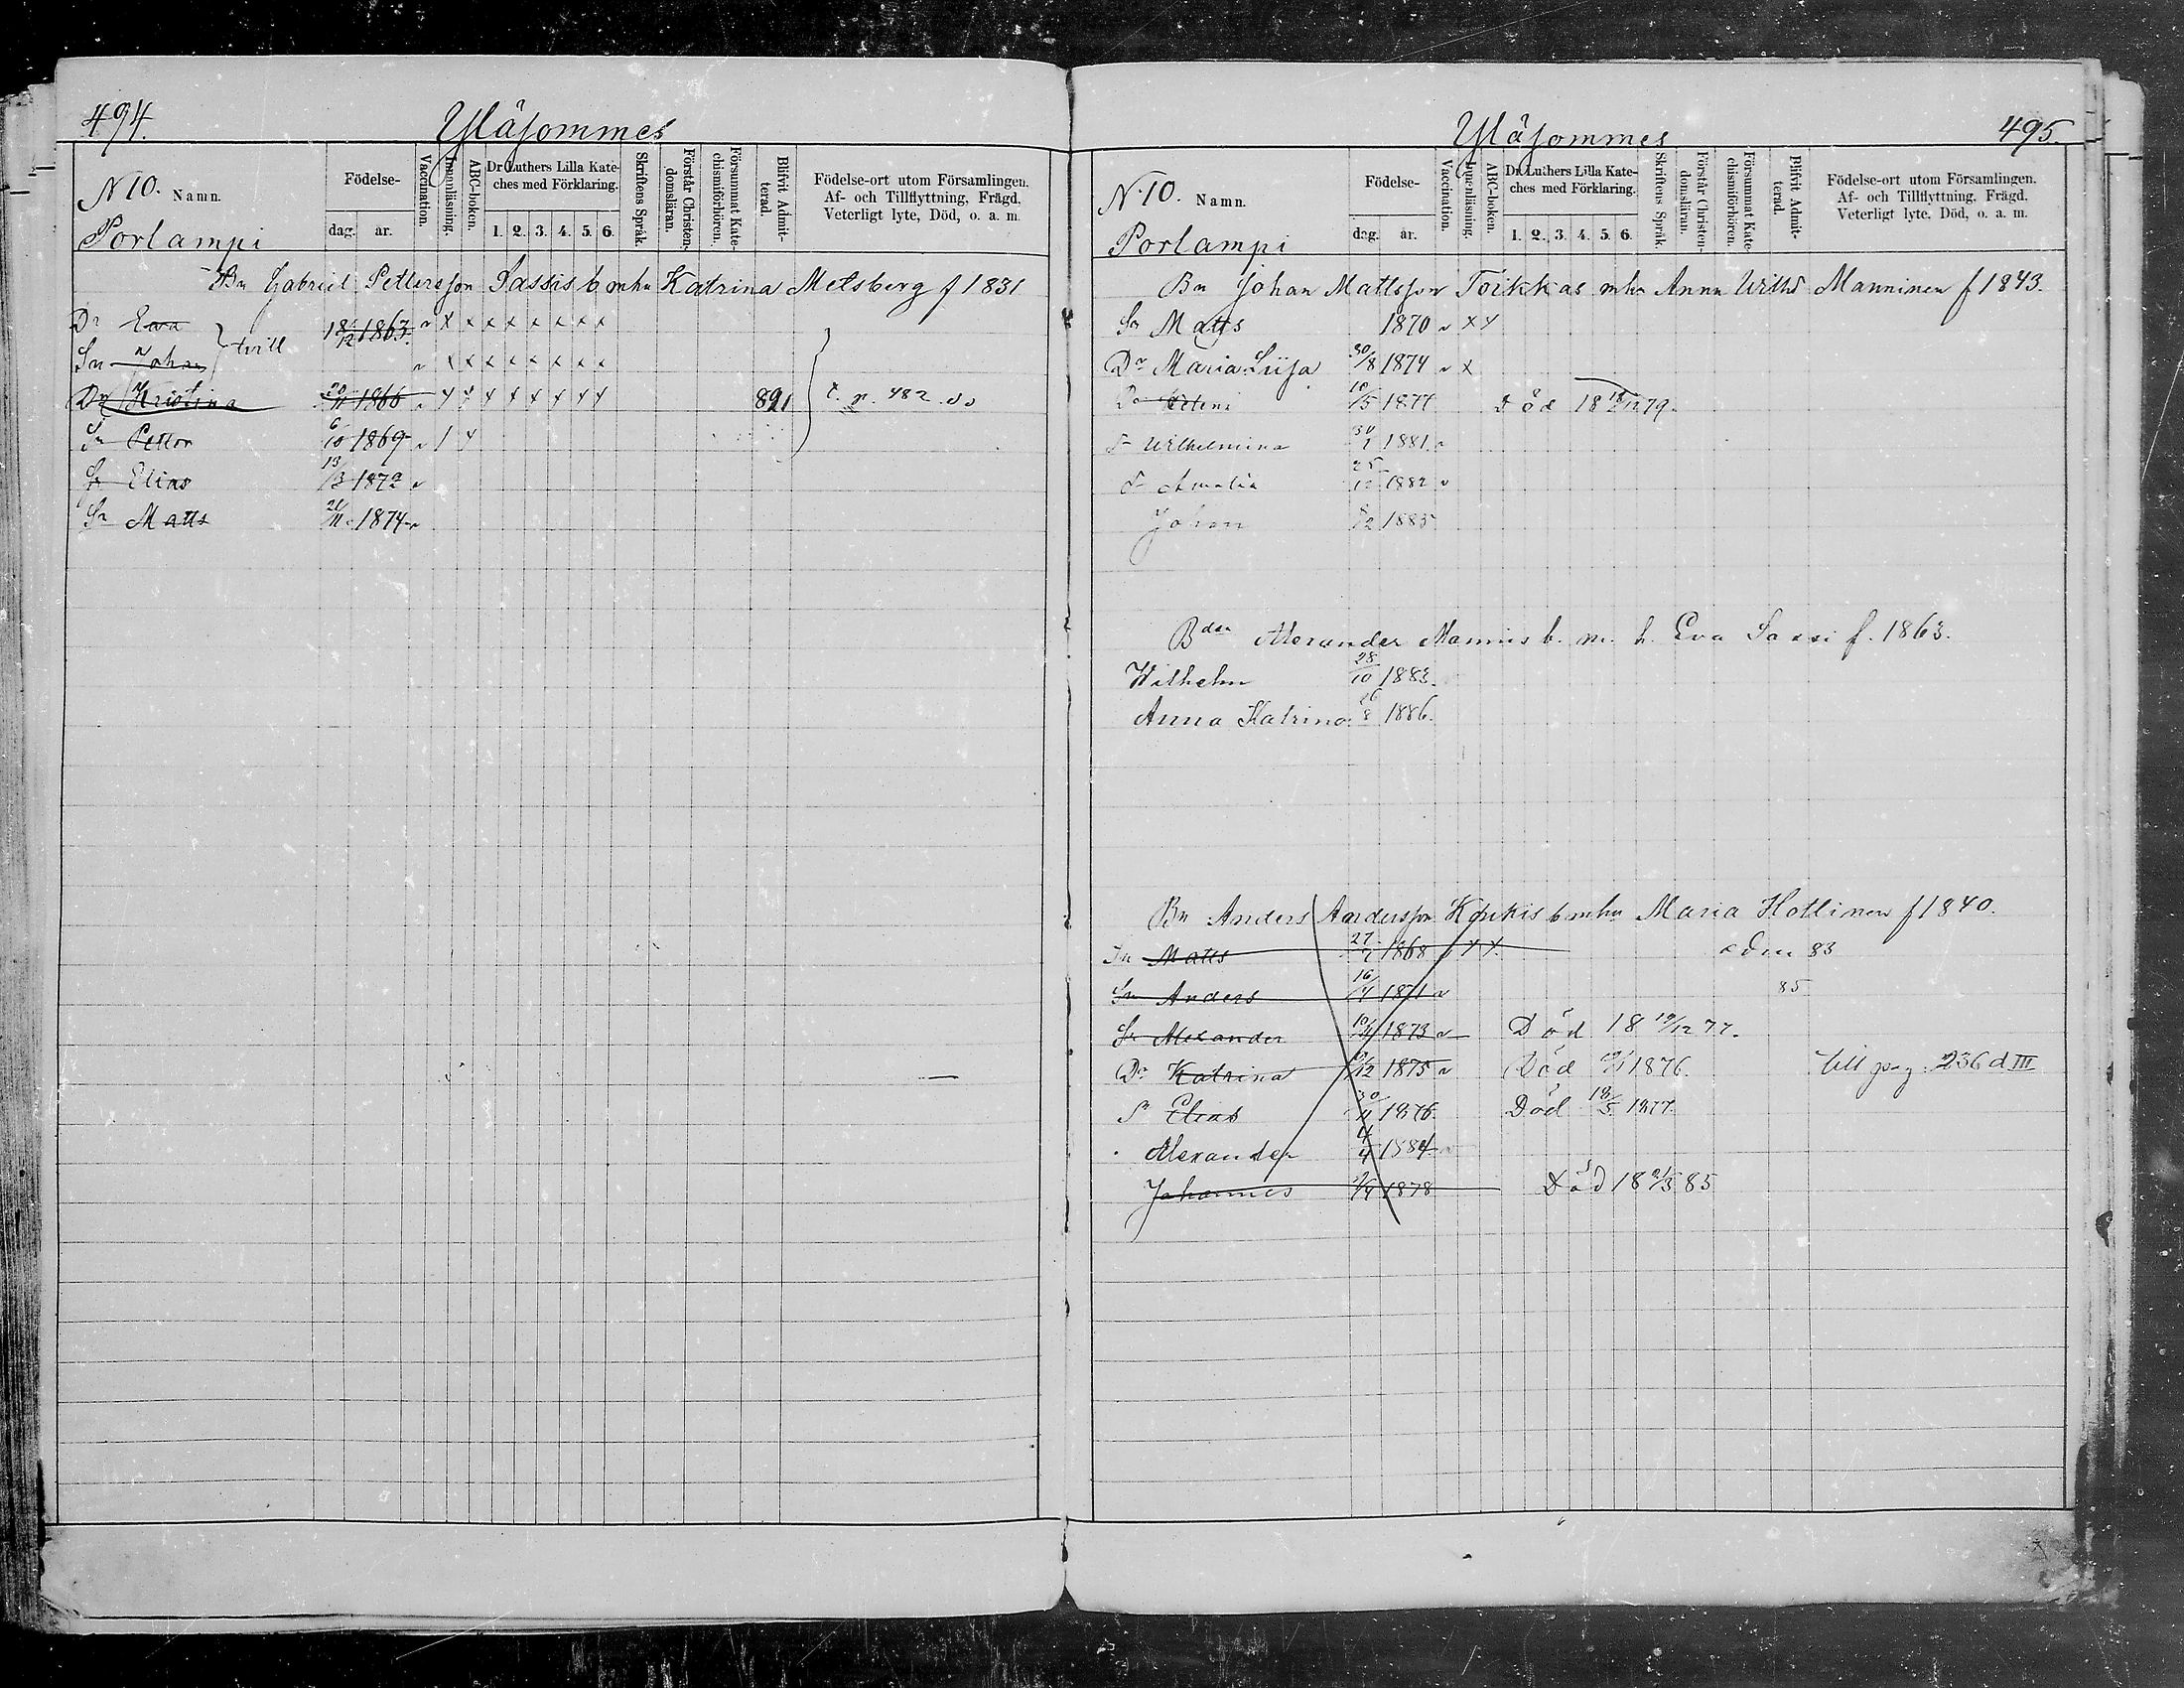 494.
Yläsommes
N 10. Namn.
Porlampi
Födelse-
dag. år.
Vaccination.
Innanläsning.
ABC-boken.
Dr Luthers Lilla Kate-
ches med Förklaring.
1. 2. 3. 4. 5. 6.
Skriftens Språk.
Förstår Christen-
domsläran.
Försummat Kate-
chismiförhören.
Blifvit Admit-
terad.
Födelse-ort utom Församlingen.
Af- och Tillflyttning, Frägd,
Veterligt lyte, Död, o. a. m.
Bn Gabriel Pettersson Sassis b mhu Katrina Metsberg f 1831
Dr Eva 18/12 1863. v x x x x x x x x
tvill
Sn Johan v x x x x x x x x
Dr Kristina 20/11 1866 v x x x x x x x x 891 t. p. 482
Sn Petter 6/10 1869 v 1 x
Sn Elias 13/3 1872 v
Sn Matts 21/11 1874 v
495.
Yläsommes
N. 10. Namn.
Porlampi
Födelse-
dag. år.
Vaccination.
Innanläsning.
ABC-boken.
Dr. Luthers Lilla Kate-
ches med Förklaring.
1. 2. 3. 4. 5. 6.
Skriftens Språk.
Förstår Christen-
domsläran.
Försummat Kate-
chismiförhören.
Blifvit Admit-
terad.
Födelse-ort utom Församlingen.
Af- och Tillflyttning, Frägd,
Veterligt lyte, Död, o. a. m.
Bn Johan Mattsson Toikkas mhu Anna Willsd Manninen f 1843.
Sn Matts 1870 v x x
Dr Maria Liisa 30/8 1874 v x
Dr 10/5 1877 Död 18 /12 79.
Wilhelmina 1881. v
Amalia 25/12 1882 v
Johan 8/2 1885
Bdn Alexander Mannis b. m. h. Eva Sassi f. 1863.
Wilhelm 28/10 1883.
Anna Katrina 26/8 1886.
Bn Anders Andersson Koukis b mhu Maria Hotlinen f 1840.
Sn Matts 1868 x x adm 83
Sn Anders 16/4 1871 v 85
Sn Alexander 1873 v Död 18 19/12 77.
Dr Katrina /12 1875 v Död 1876. till pag. 236 d III
Sn Elias 30/11 1876. Död 18/5 1877.
Alexander 4/4 1884
Johannes 1878 Död 18 2/5 85